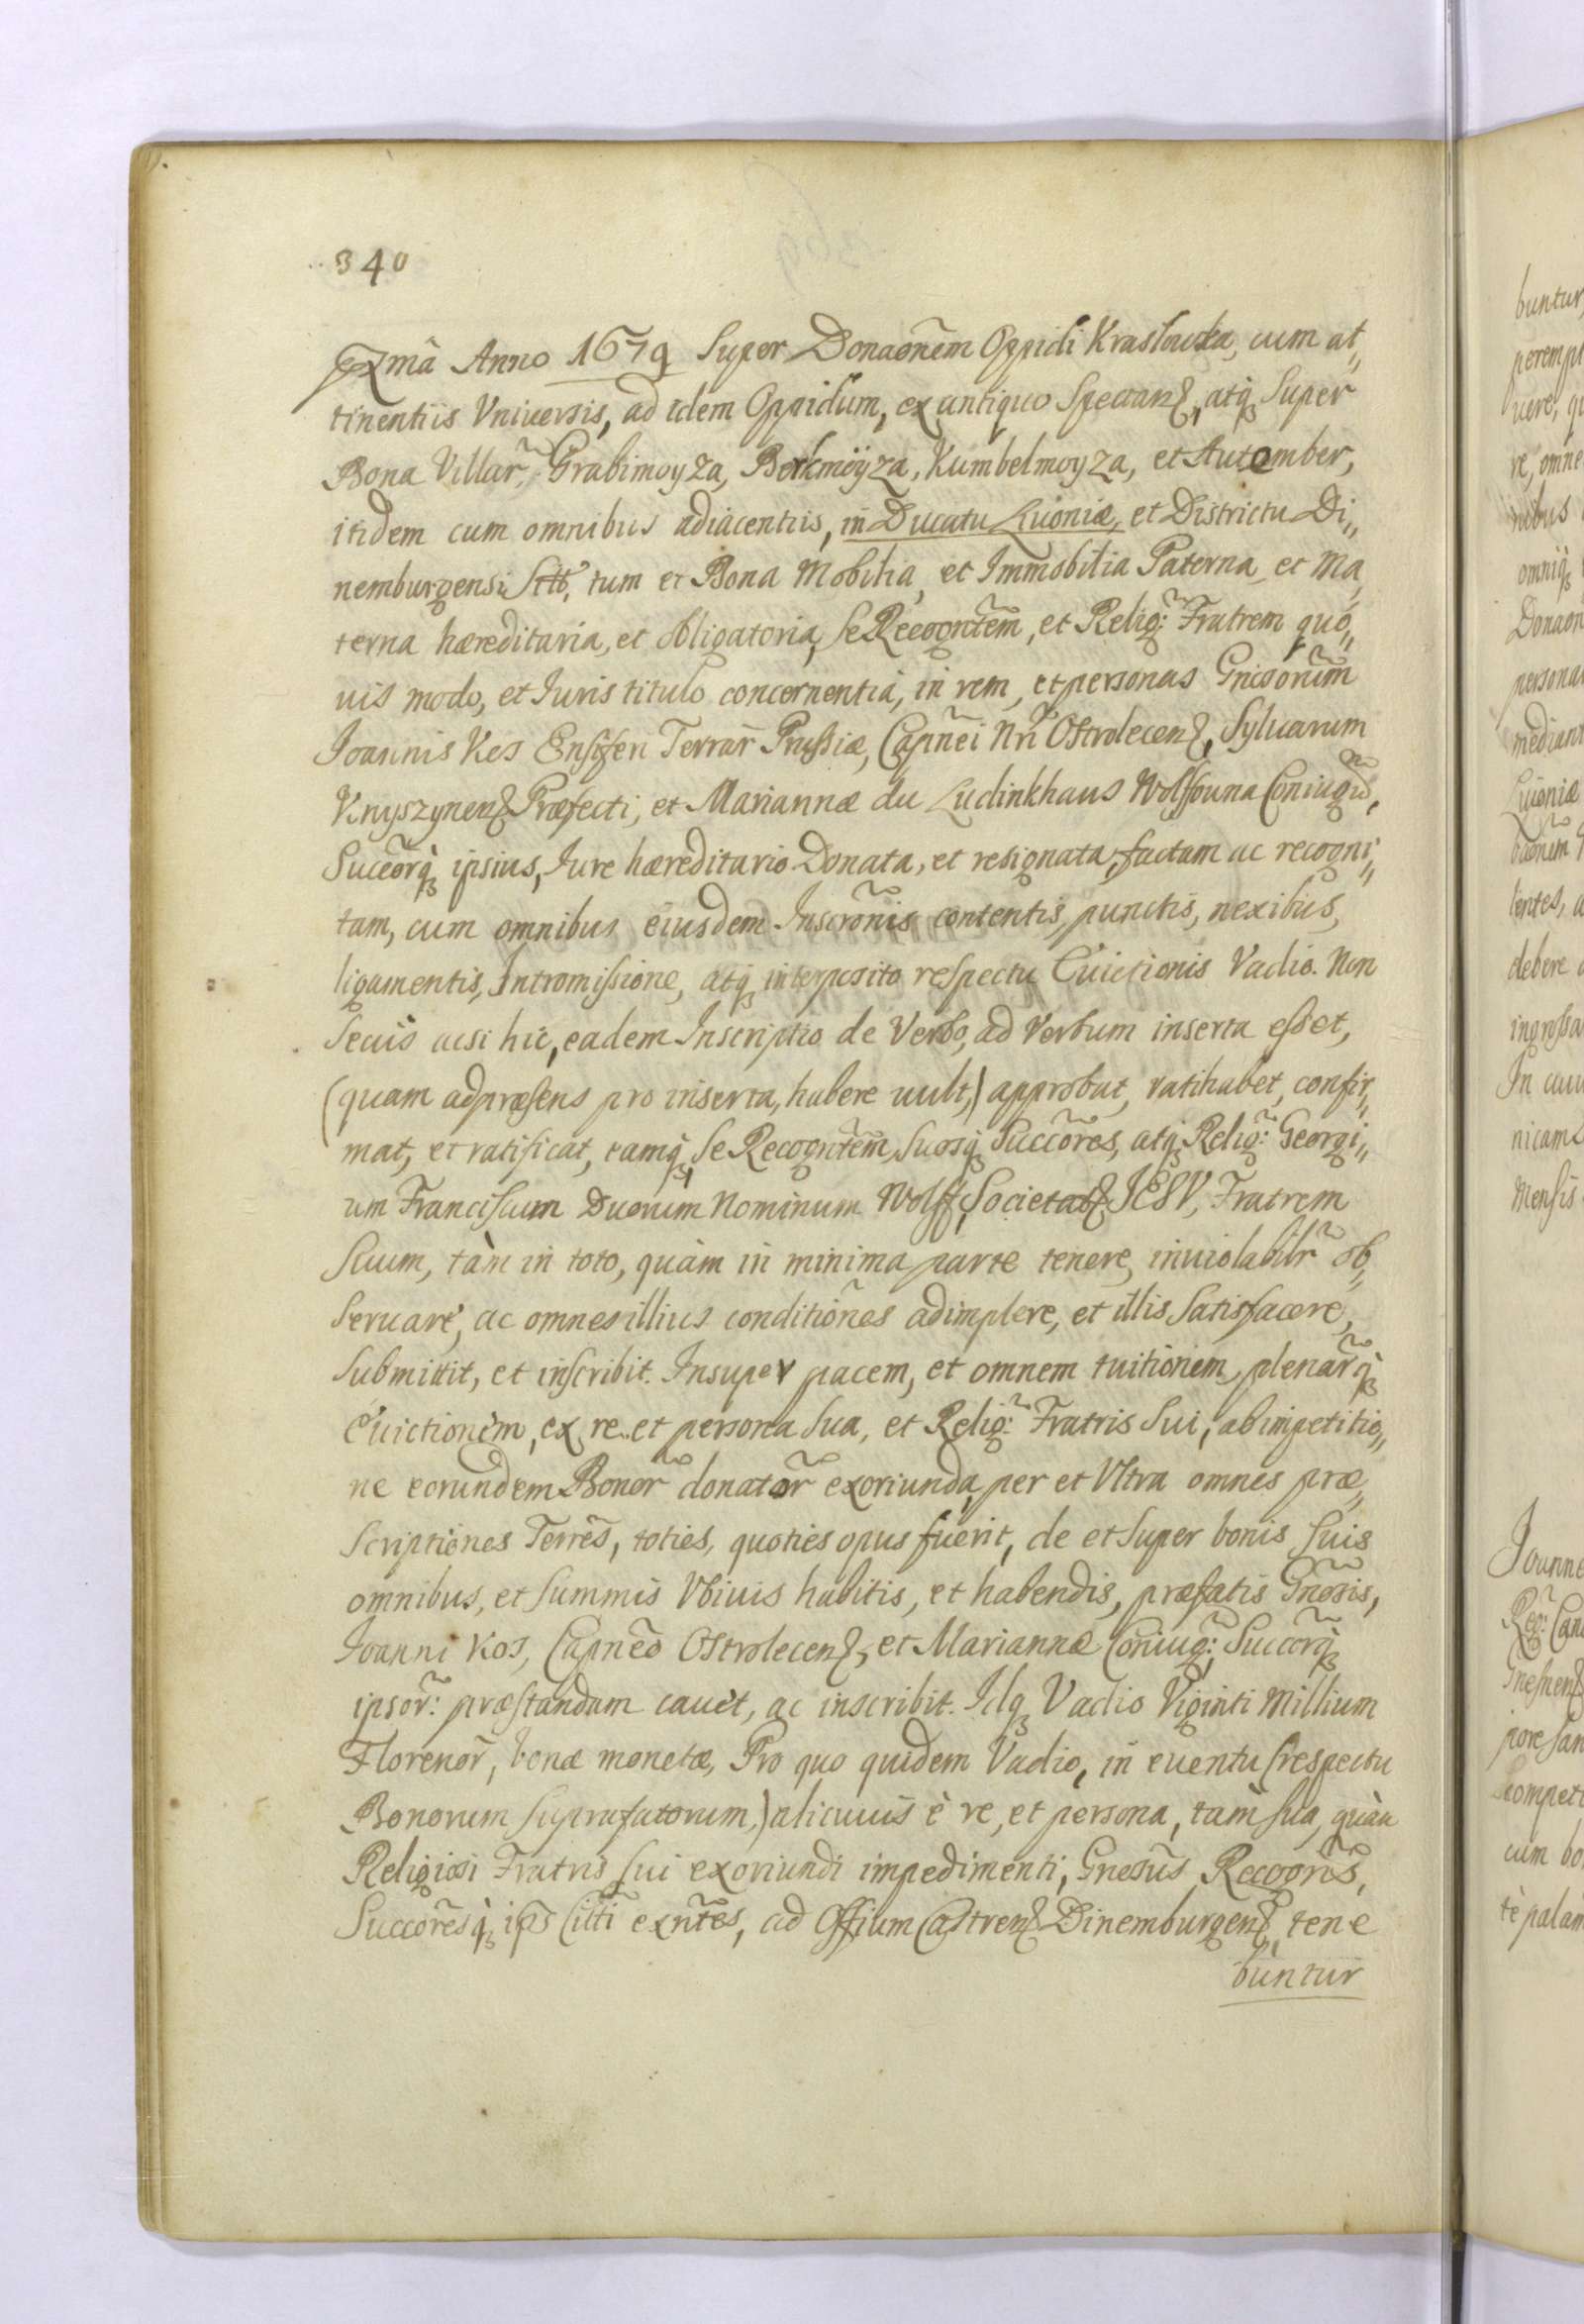 340
Pxmâ Anno 1679 Super Donaōnem Oppidi Krasławka, cum at„
tinentiis Vniuersis, ad idem Oppidum, ex antiquo Spectanȝ, atq̨ Super
Bona Villar̃, Grabimoyza, Berkmöyza, Kumbelmoyza, et Autember,
itidem cum omnibus adiacentiis, in Ducatu Liuoniæ, et Districtu Di„
nemburgensi Stto, tum et Bona Mobilia, et Immobilia Paterna, et Ma„
terna hæreditaria, et obligatoria, Se Recogñtem, et Relig: Fratrem quo„
uis modo, et Iuris titulo concernentia, in rem, et personas Gñsorum
Joannis Kos Ensiferi Terrar̃ Prussiæ, Capñei Nr̃i Ostrolecenȝ, Syluarum
Knyszynenȝ Præfecti, et Mariannæ du Ludinkhaus Wolffouna Coniugũ,
Succorq̨ ipsius, Iure hæreditario Donata, et resignata, factam ac recogni„
tam, cum omnibus eiusdem Inscrõnis contentis, punctis, nexibus,
ligamentis, Intromissione, atq̨ interposito respectu Euictionis Vadio. Non
Secùs acsi hîc, eadem Inscriptio de Verbo, ad Verbum inserta esset,
(quam adpræsens pro inserta, habere uult,) approbat, ratihabet, confir„
mat, et ratificat, eamq̨, Se Recogñtem, Suosq̨ Succõres, atq̨ Relig: Georgi„
um Franciscum Duorum Nominum Wolff, Societatȝ JESV, Fratrem
Suum, tàm in toto, quàm in minima parte tenere, inuiolabilr̃ ob„
Seruare, ac omnes illius conditiones adimplere, et illis Satisfacere,
Submittit, et inscribit. Insuper pacem, et omnem tuitionem, plenar̃q̨
Euictionem, ex re et persona Sua, et Relig: Fratris Sui, ab impetitio„
ne eorundem Bonor̃ donator̃ exoriunda, per et Vltra omnes præ„
scriptiones Terrẽs, toties, quoties opus fuerit, de et Super bonis Suis
omnibus, et Summis Vbiuis habitis, et habendis, præfatis Gñosis,
Joanni Kos, Capñeo Ostrolecenȝ, et Mariannæ Coniug:, Succorq̨
ipsor̃: præstandam cauet, ac inscribit. Idq̨ Vadio Viginti Millium
Florenor̃, bonæ monetæ, Pro quo quidem Vadio, in euentu (respectu
Bonorum Suprafatorum,) alicuius è re, et persona, tam Sua, quàm
Religiosi Fratris Sui exoriundi impedimenti, Gnosus Recogñs,
Succoresq̨ ips Citti exñtes, ad Offium Castrenȝ Dinemburgenȝ tene
buntur